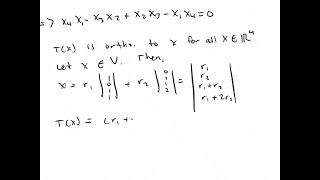 => x4 x1 - x3 x2 + x2 x3 - x1 x4 = 0
T(x) is ortho. to x for all x ∈ ℝ^4
Let x ∈ V. Then,
x = r1 |1 0 1 1| + r2 |0 1 1 2| = |r1 r2 r1+r2 r1+2r2|
T(x) = (r1 +